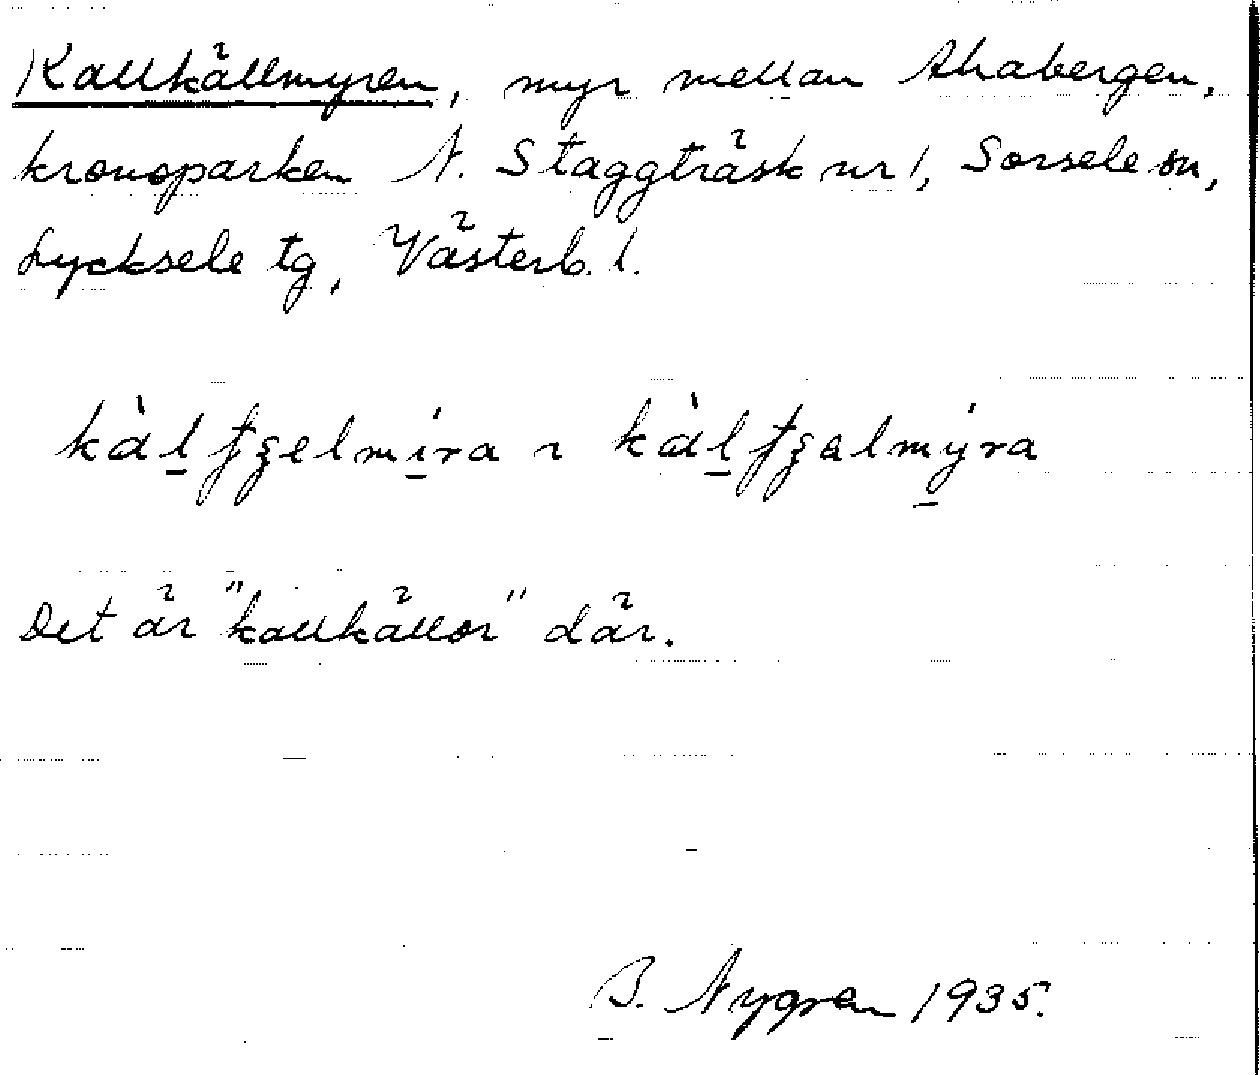 Kallkällmyren, myr mellan Ahabergen,
kronoparken N. Staggträsk nr 1, Sorsele sn,
Lycksele tg, Västerb. l.
Det är "kallkällor" där.
B. Nygren 1935.